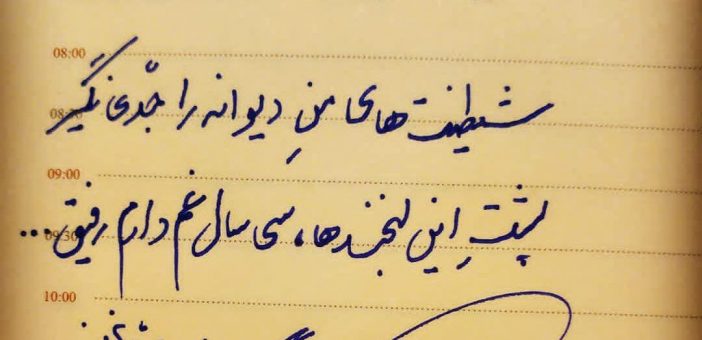 08:00
شیطنت های منِ دیوانه را جدّی نگیر
08:30
09:00
پشتِ این لبخندها، سی سال غم دارم رفیق...
09:30
10:00